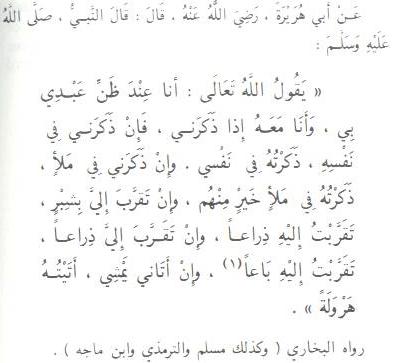 عَنْ أَبي هُرَيْرَةَ ، رَضِيَ اللَّهُ عَنْهُ ، قَالَ : قَالَ النَّبيُّ ، صَلَّى اللَّهُ
عَلَيْهِ وَسَلَّمَ :
« يَقُولُ اللَّهُ تَعَالَى : أنا عِنْدَ ظَنِّ عَبْدِي
بِي ، وَأَنَا مَعَهُ إِذَا ذَكَرَنِي ، فَإِنْ ذَكَرَني فِي
نَفْسِهِ ، ذَكَرْتُهُ فِي نَفْسي . وإِنْ ذَكَرَني فِي مَلأٍ ،
ذَكَرْتُهُ فِي مَلأٍ خَيْرٍ مِنْهُم ، وإِنْ تَقَرَّبَ إِليَّ بِشِبْرٍ ،
تَقَرَّبْتُ إِلَيْهِ ذِراعاً ، وإِنْ تَقَرَّبَ إِليَّ ذِراعاً ،
تَقَرَّبْتُ إِلَيْهِ بَاعاً (١) ، وإِنْ أَتَاني يَمْشِي ، أَتَيْتُهُ
هَرْوَلَةً » .
رواه البخاري ( وكذلك مسلم والترمذي وابن ماجه ) .